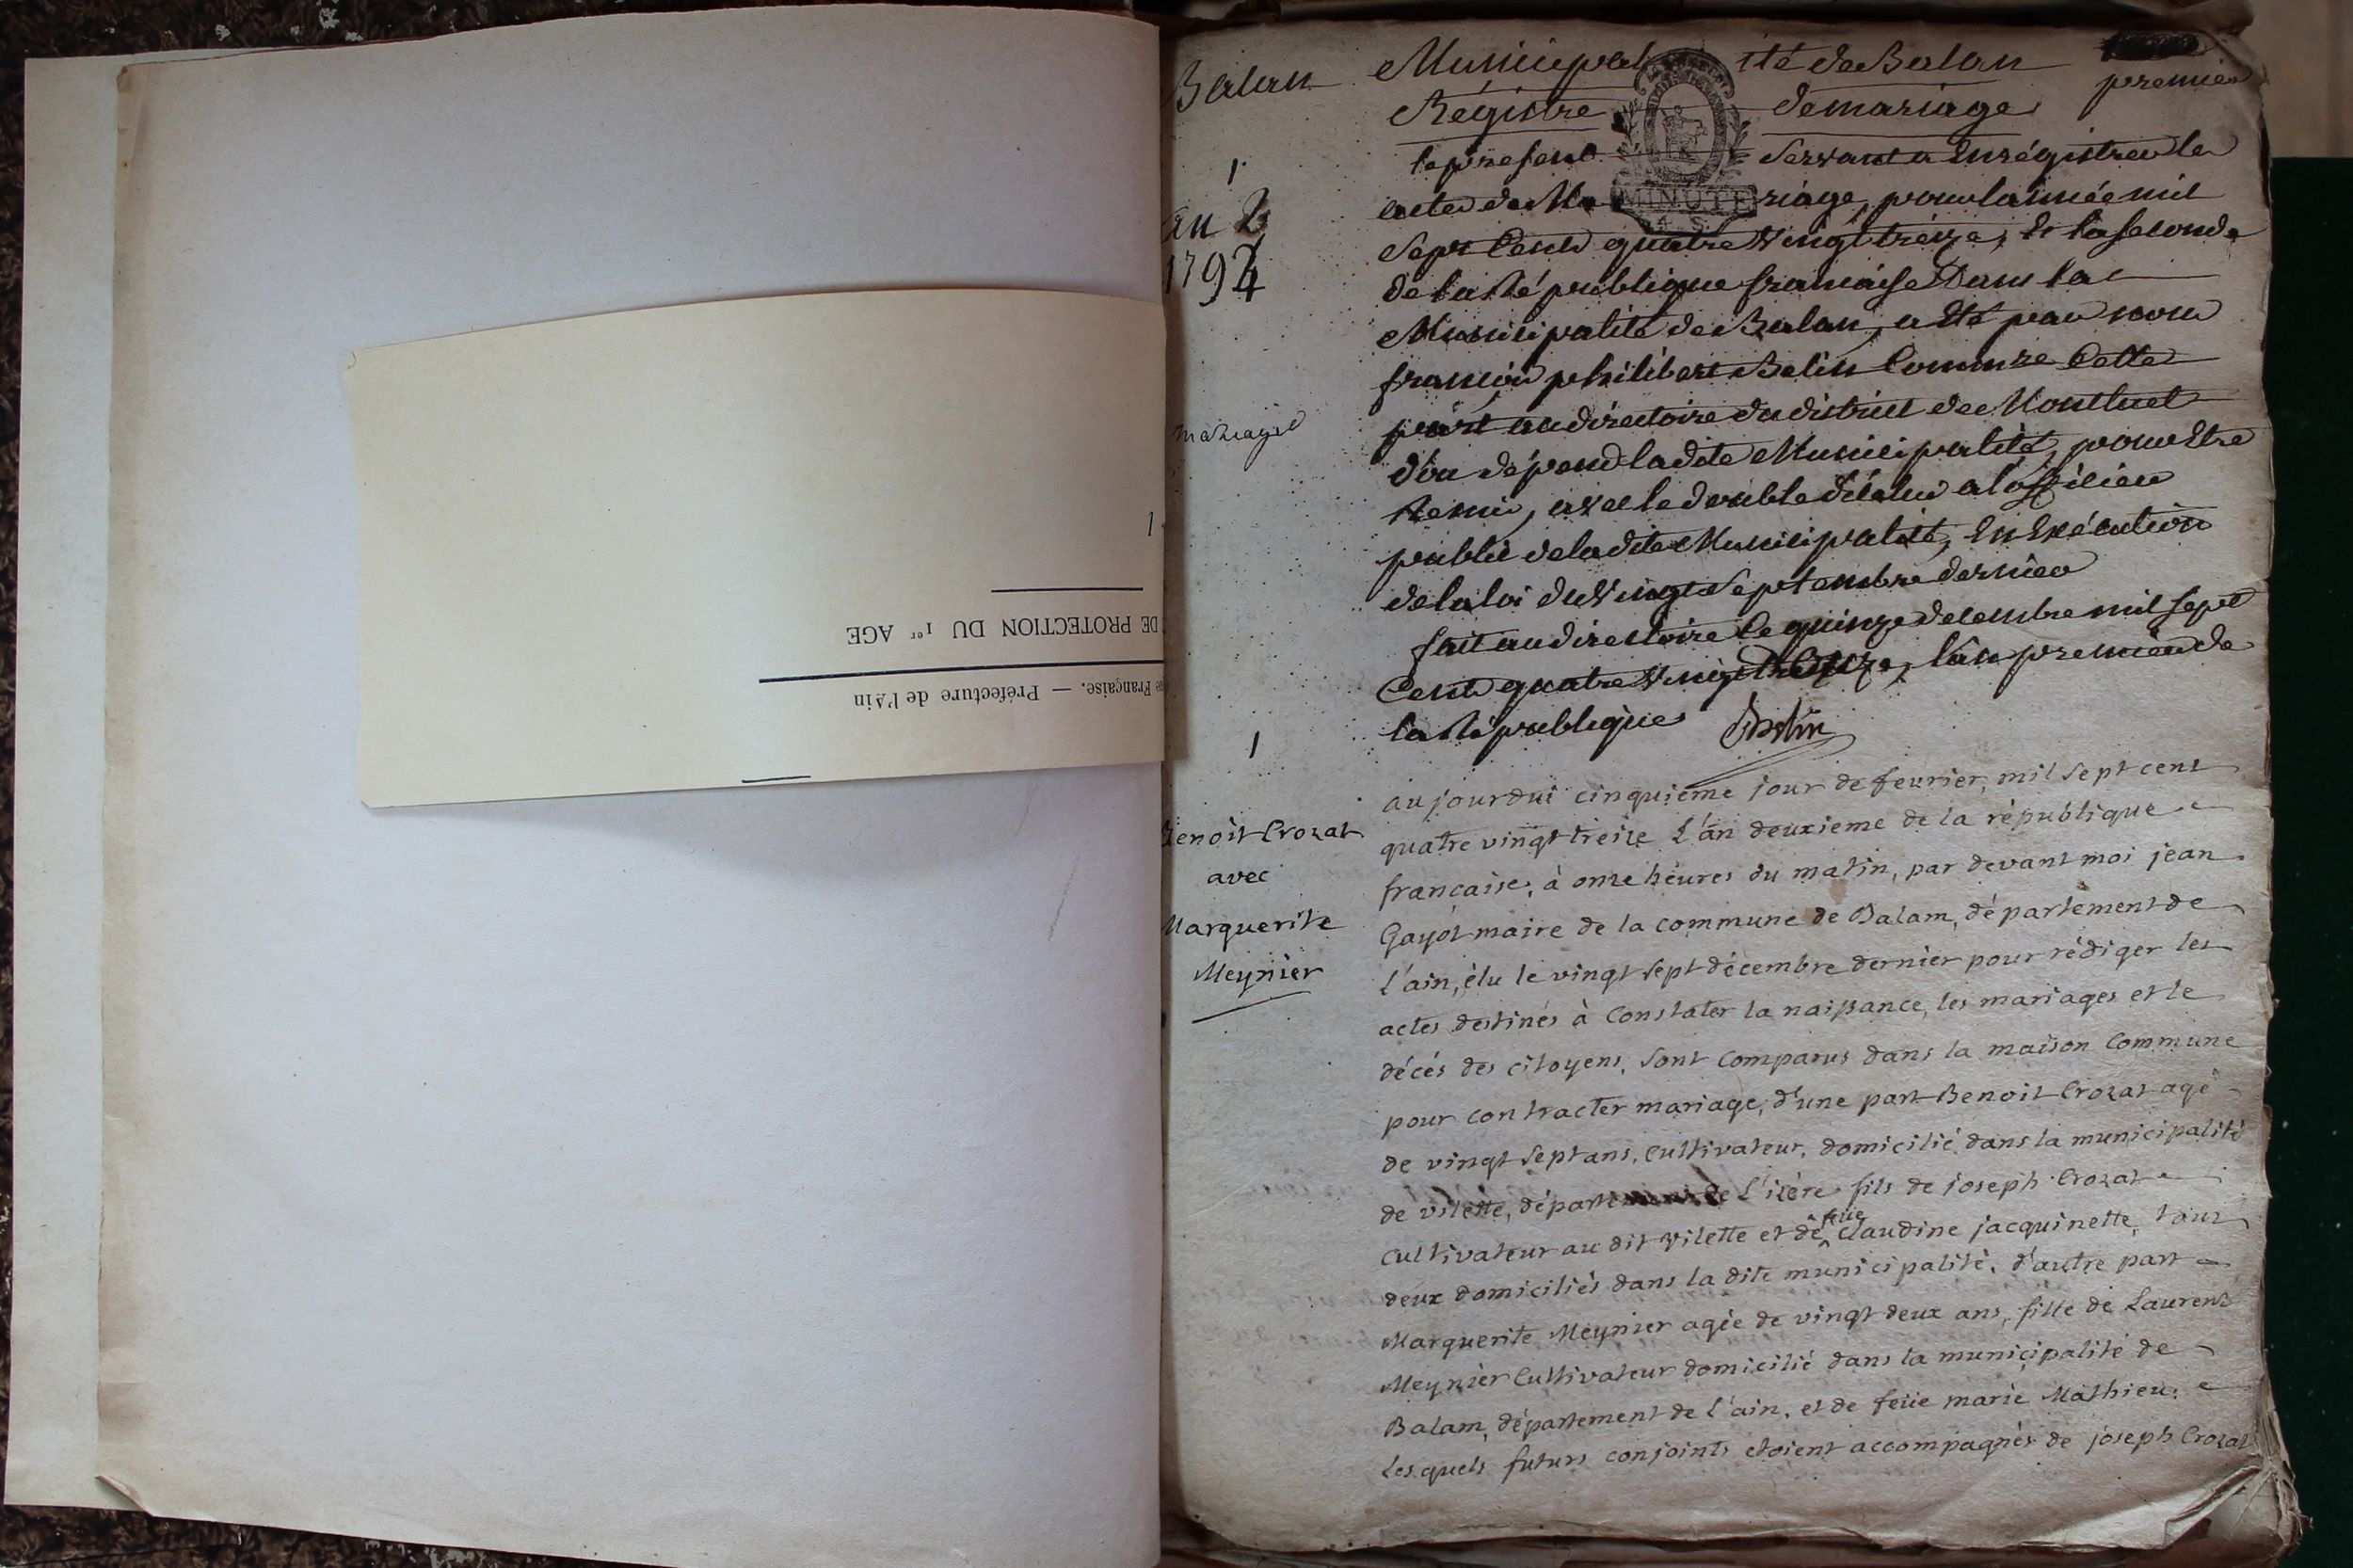 DE PROTECTION DU Ier AGE
Française. — Préfecture de l'Ain
Balan
Municipalité de Balan
premier
Régistre de mariage
1
le présent servant a Enrégistrer le
MINUTE
an 2
actes de Mariage, pour l'année mil
1794
sept Cents quatre vingt treize, Et la seconde
de la République française Dans la
Municipalité de Balan, a Eté par nous
françois philibert Belin Comm.re Cette
mariages
part au directoire du district de Montluel
d'ou dépend ladite Municipalité, pour Etre
Remis, avec le double d'icelui a l'officier
public de ladite Municipalité, En Exécution
de la loi du vingt Septembre dernier
fait au directoire le quinze decembre mil sept
Cents quatre vingt Douze, l'an premier de
la République Belin
1
aujourdui cinquieme jour de fevrier, mil sept cent
Benoit Crozat
quatre vingt treize L'an deuxieme de la république
avec
francaise, à onze héures du matin, par devant moi jean
Marguerite
Gayot maire de la commune de Balam, département de
Meynier
L'ain, élu le vingt sept décembre dernier pour rédiger les
actes destinés à Constater la naissance, les mariages et le
décés des citoyens, sont comparus dans la maison Commune
pour contracter mariage, d'une part Benoit Crozat agé
de vingt sept ans, cultivateur, domicilié dans la municipalité
de vilette, département de L'isère fils de joseph Crozat
feüe
cultivateur au dit vilette et de claudine jacquinette, tous
deux domiciliés dans la dite municipalité, d'autre part
Marguerite Meynier agée de vingt deux ans, fille de Laurent
Meynier Cultivateur domicilié dans la municipalité de
Balam, département de L'ain, et de feüe marie Mathieu,
Lesquels futurs conjoints etoient accompagnés de joseph Crozat